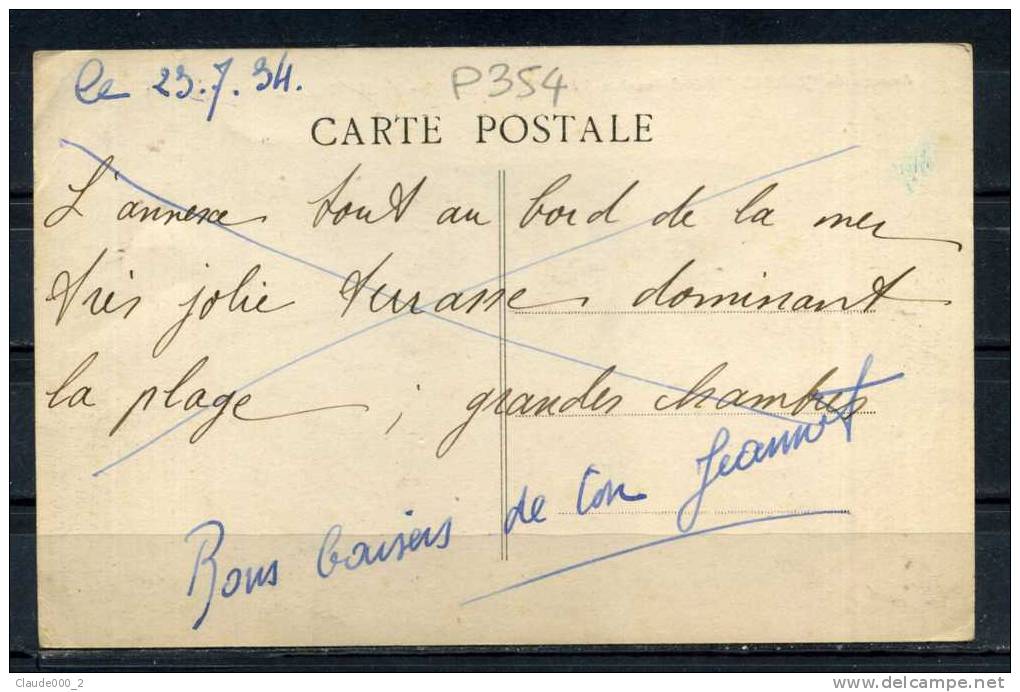 le 23.7.34.
P354
CARTE POSTALE
L'annexe tout au bord de la mer
très jolie terrasse dominant
la plage ; grandes chambres
Bons baisers de ton Jeannot
Claude000_2
www.delcampe.net